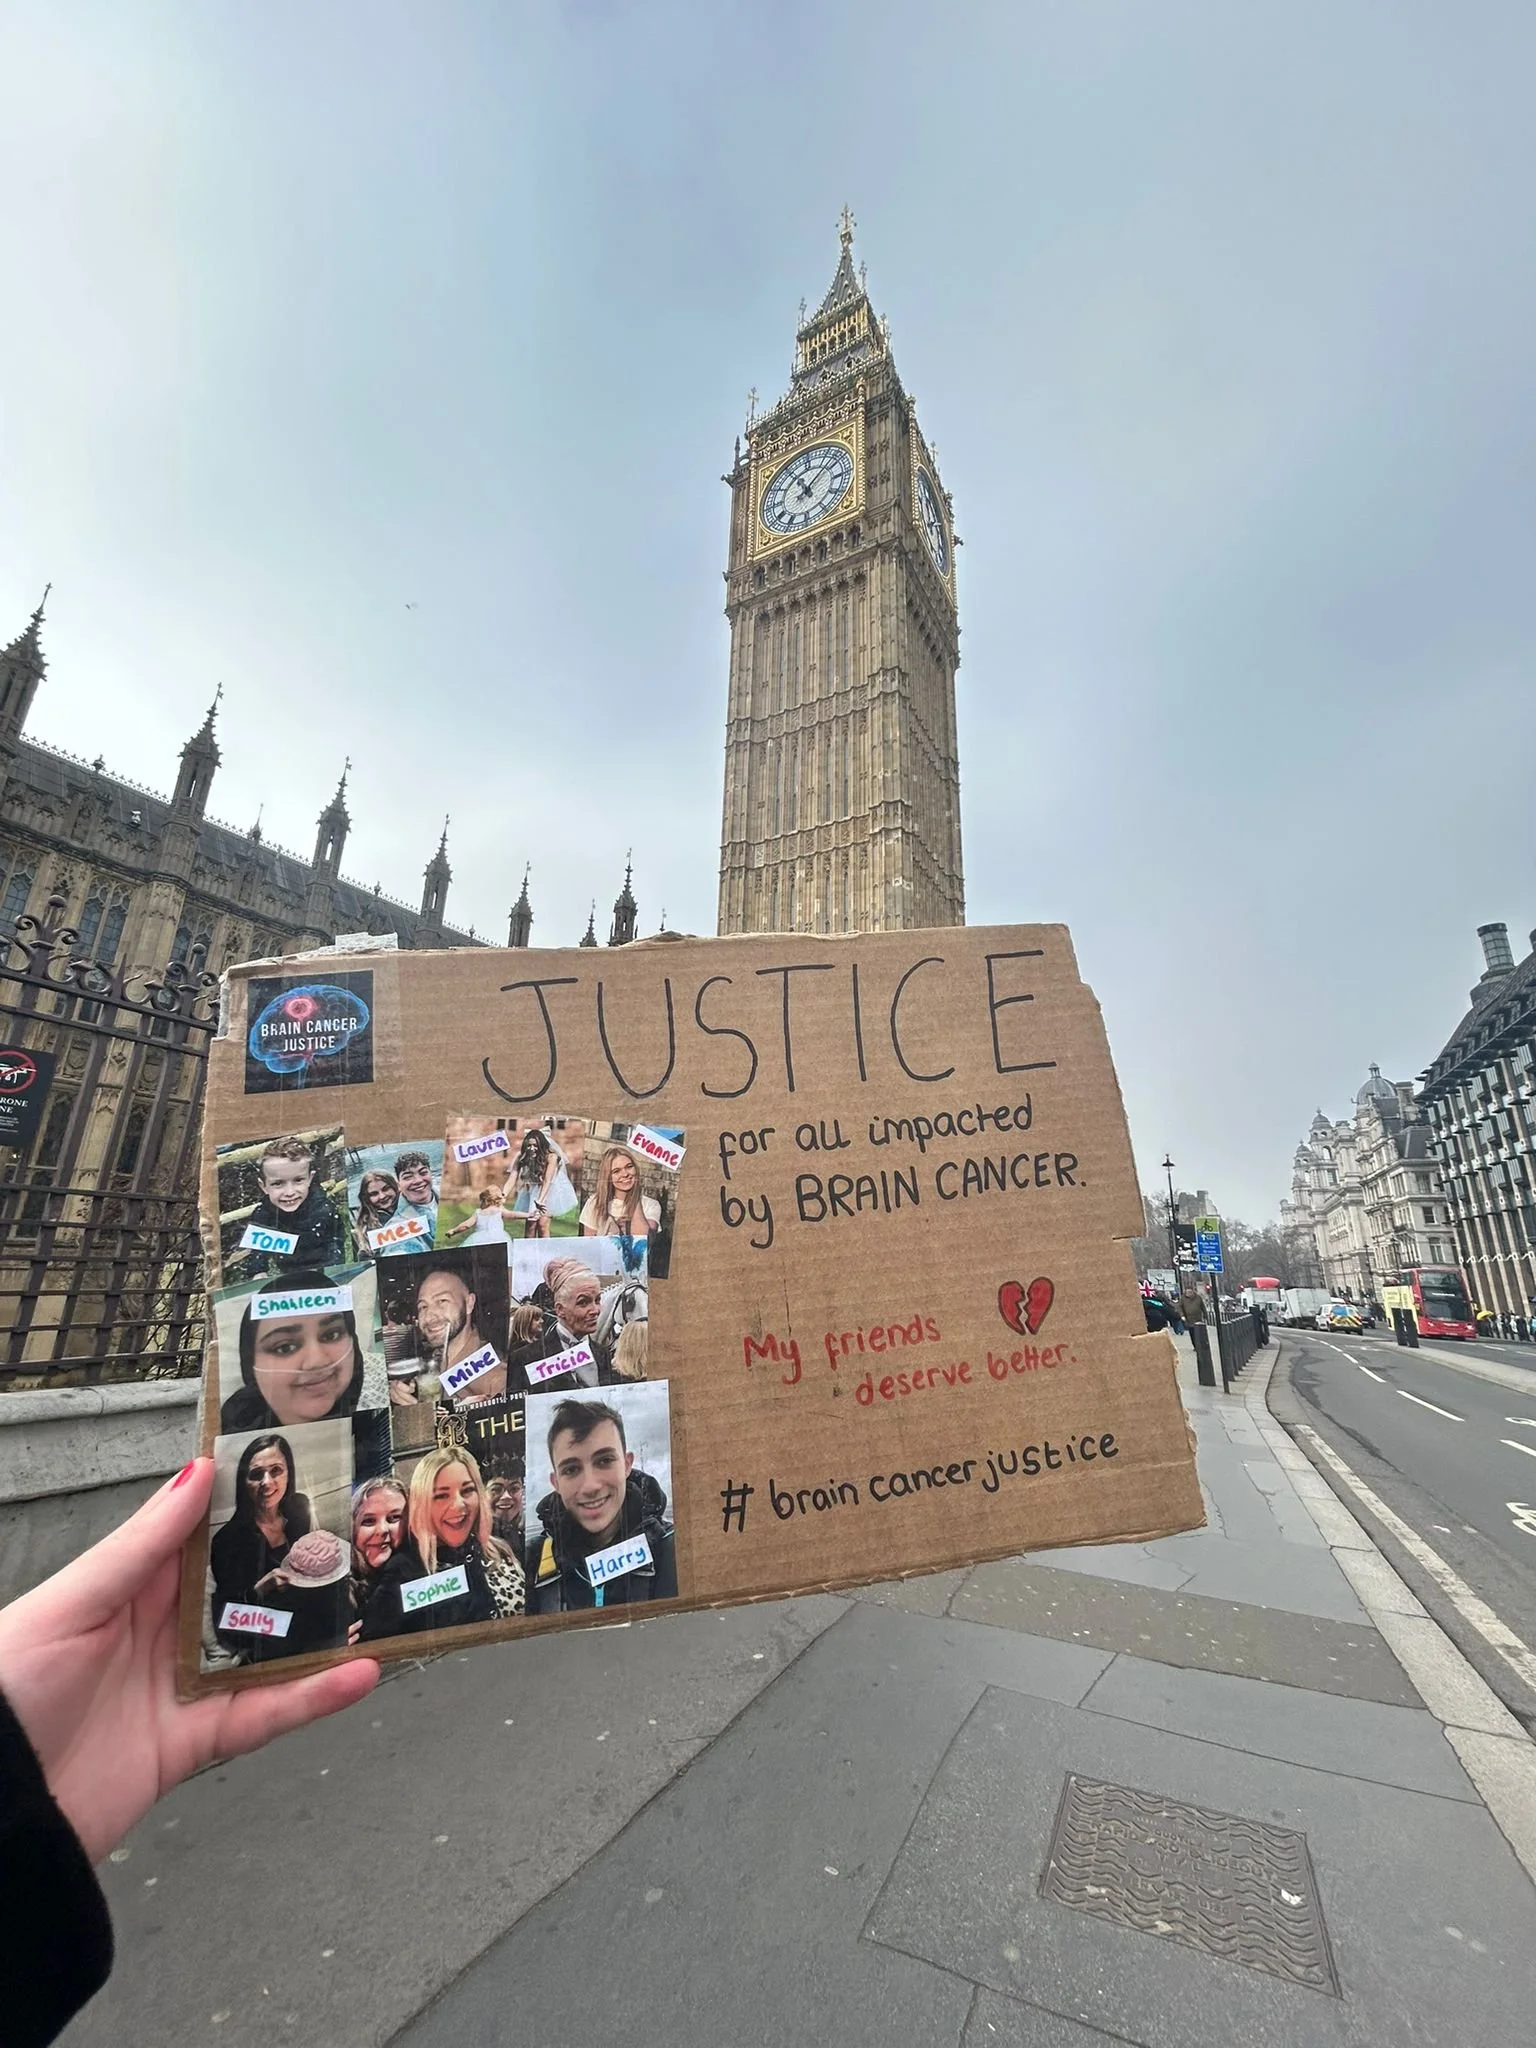 JUSTICE
BRAIN CANCER
JUSTICE
for all impacted
by BRAIN CANCER.
Laura
Evanne
Tom
Met
Shahleen
Mike
Tricia
My friends
deserve better.
THE
Sally
Sophie
Harry
# brain cancer justice